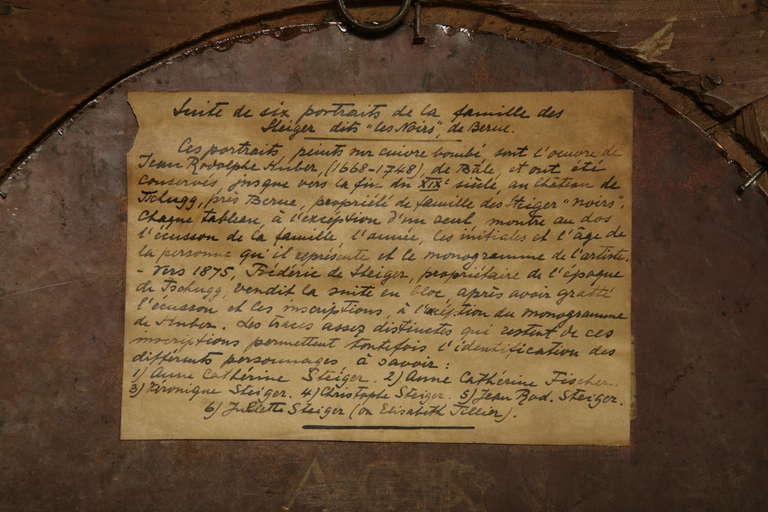 Suite de six portraits de la famille des
Steiger dits "les Noirs", de Berne.
Ces portraits, peints sur cuivre bombé sont l'oeuvre de
Jean Rodolphe Huber, (1668-1748), de Bâle, et ont été
conservés, jusque vers la fin du XIXe siècle, au château de
Tschugg, près Berne, propriété de famille des Steiger "noirs".
Chaque tableau, à l'exception d'un seul montre au dos
l'écusson de la famille, l'année, les initiales et l'âge de
la personne qu'il représente et le monogramme de l'artiste.
- Vers 1875, Frédéric de Steiger, propriétaire de l'époque
de Tschugg, vendit la suite en bloc, après avoir gratté
l'écusson et les inscriptions, à l'exception du monogramme
de Huber. Les traces assez distinctes qui restent de ces
inscriptions permettent toutefois l'identification des
différents personnages à savoir:
1) Anne Cathérine Steiger. 2) Anne Cathérine Fischer.
3) Véronique Steiger. 4) Christophe Steiger. 5) Jean Rod. Steiger.
6) Juliette Steiger (ou Elisabeth Tillier).